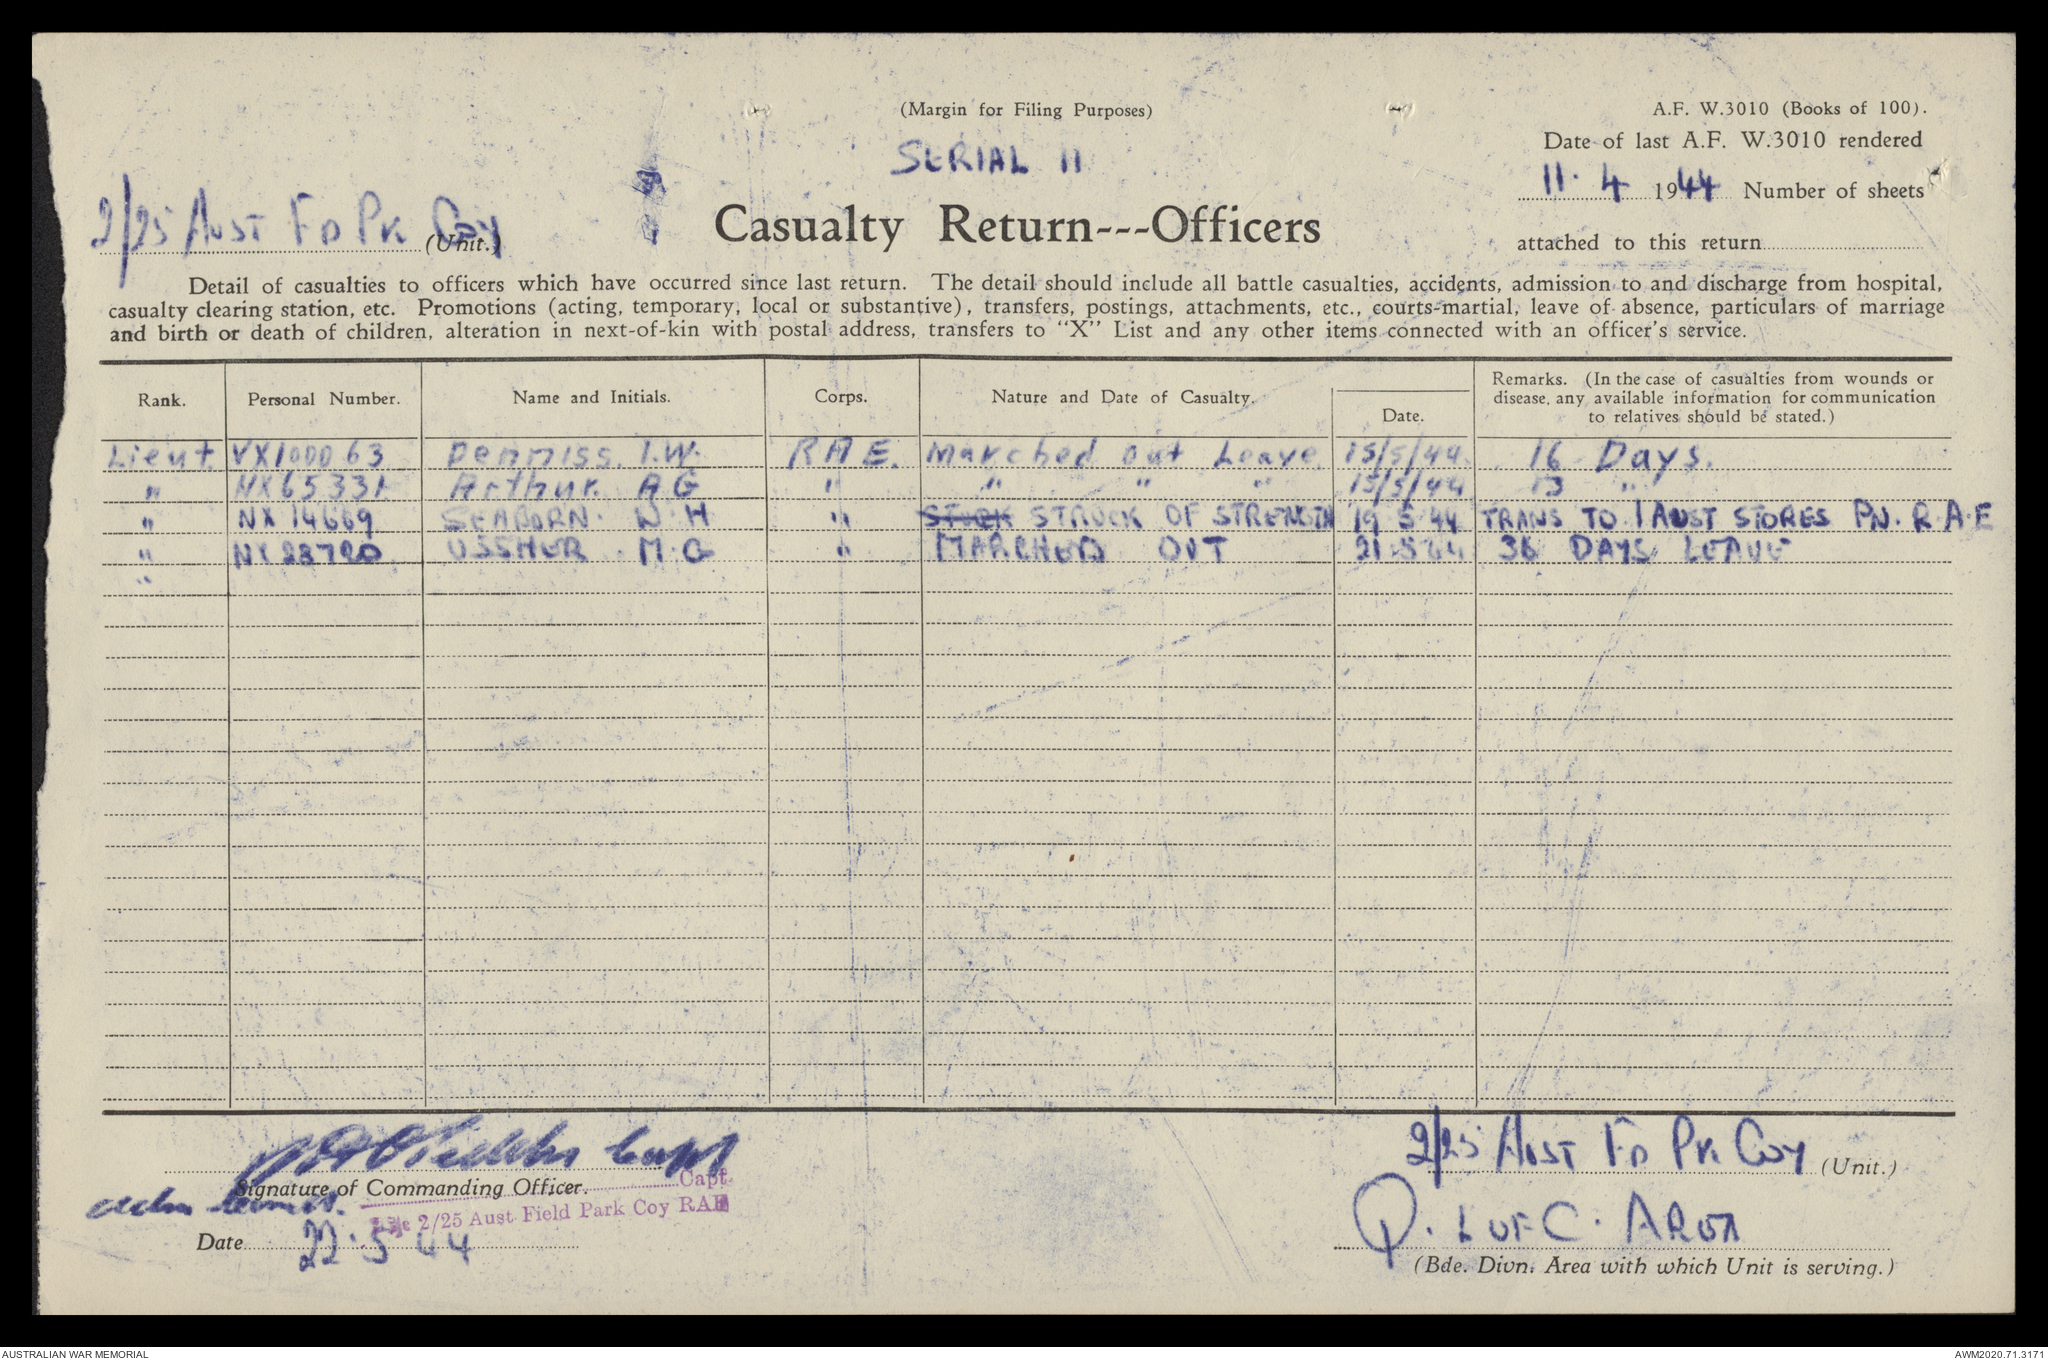 (Margin for Filing Purposes)
A.F. W.3010 (Books of 100).
SERIAL 11
Date of last A.F. W.3010 rendered
11. 4 1944 Number of sheets
2/25 AUST FD PK COY (Unit.)
Casualty Return---Officers
attached to this return
Detail of casualties to officers which have occurred since last return. The detail should include all battle casualties, accidents, admission to and discharge from hospital,
casualty clearing station, etc. Promotions (acting, temporary, local or substantive), transfers, postings, attachments, etc., courts-martial, leave of absence, particulars of marriage
and birth or death of children, alteration in next-of-kin with postal address, transfers to "X" List and any other items connected with an officer's service.
Rank. Personal Number. Name and Initials. Corps. Nature and Date of Casualty. Date. Remarks. (In the case of casualties from wounds or
disease, any available information for communication
to relatives should be stated.)
Lieut. VX100063 Denniss. I.W. R A E. Marched out Leave 15/5/44. 16 Days.
" NX65331 Arthur. A G " " " " 15/5/44 13 "
" NX 14669 SEABORN. W H " STUCK STRUCK OF STRENGTH 19 5 44 TRANS TO 1 AUST STORES PN. R.A.E
" NX28720 USSHER M.G " MARCHED OUT 21.5.44 36 DAYS LEAVE
"
Capt
Signature of Commanding Officer. Capt
2/25 Aust Field Park Coy RAE
Date 22.5 44
2/25 AUST FD PK COY (Unit.)
Q. L OF C. AREA
(Bde. Divn. Area with which Unit is serving.)
AUSTRALIAN WAR MEMORIAL
AWM2020.71.3171